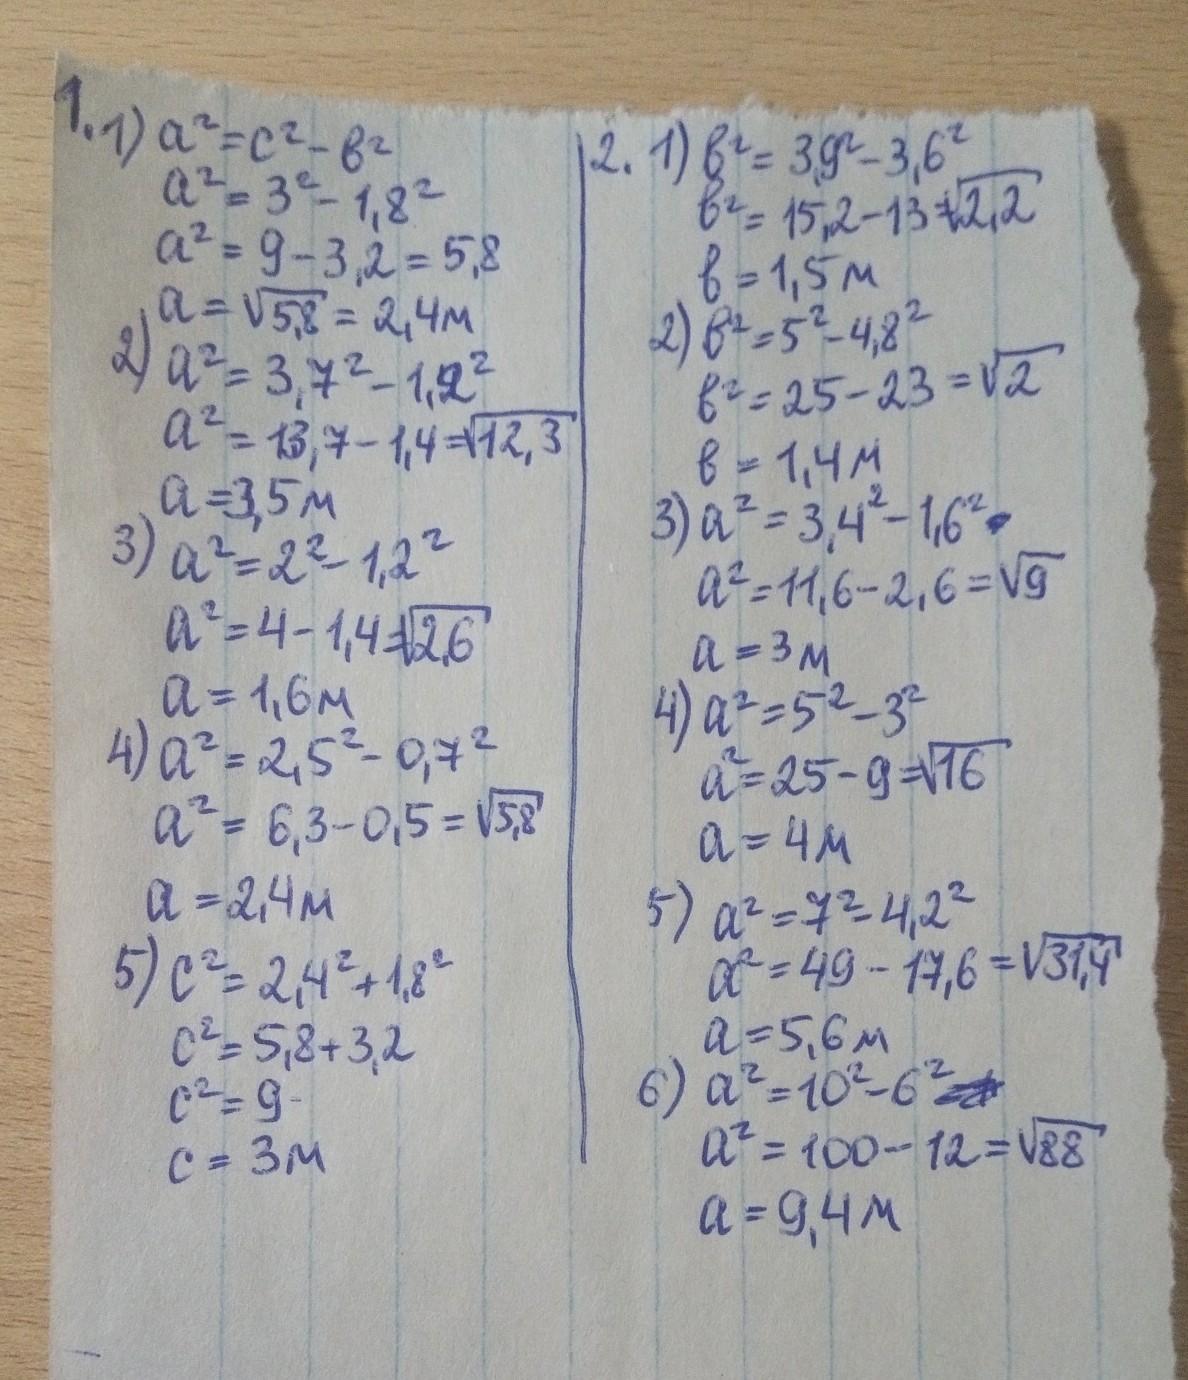 1. 1) a² = c² - в²
a² = 3² - 1,8²
a² = 9 - 3,2 = 5,8
a = √5,8 = 2,4м
2) a² = 3,7² - 1,2²
a² = 13,7 - 1,4 = √12,3
a = 3,5м
3) a² = 2² - 1,2²
a² = 4 - 1,4 = √2,6
a = 1,6м
4) a² = 2,5² - 0,7²
a² = 6,3 - 0,5 = √5,8
a = 2,4м
5) c² = 2,4² + 1,8²
c² = 5,8 + 3,2
c² = 9
c = 3м
2. 1) в² = 3,9² - 3,6²
в² = 15,2 - 13 = √2,2
в = 1,5м
2) в² = 5² - 4,8²
в² = 25 - 23 = √2
в = 1,4м
3) a² = 3,4² - 1,6²
a² = 11,6 - 2,6 = √9
a = 3м
4) a² = 5² - 3²
a² = 25 - 9 = √16
a = 4м
5) a² = 7² - 4,2²
a² = 49 - 17,6 = √31,4
a = 5,6м
6) a² = 10² - 6²
a² = 100 - 12 = √88
a = 9,4м